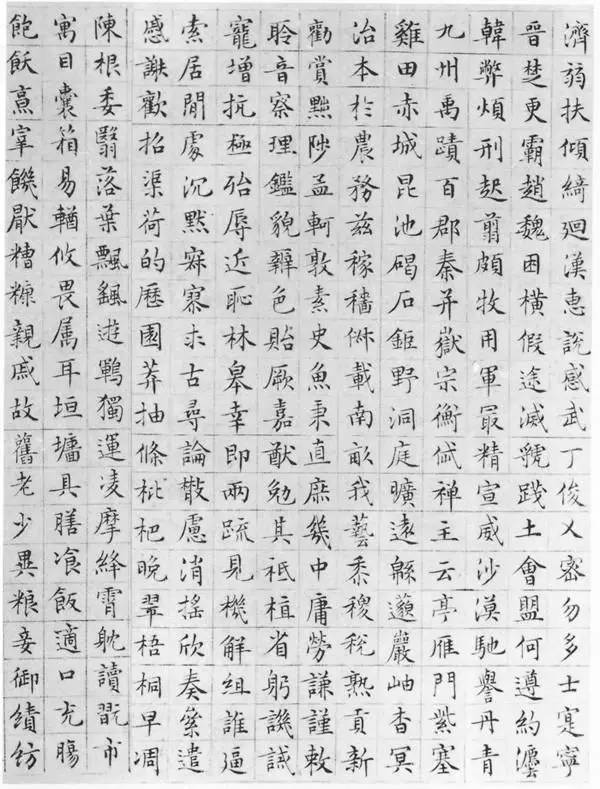 濟弱扶傾綺迴漢惠說感武丁俊乂密勿多士寔寧
晉楚更霸趙魏困橫假途滅虢踐土會盟何遵約灋
韓弊煩刑起翦頗牧用軍冣精宣威沙漠馳譽丹青
九州禹蹟百郡秦并嶽宗衡岱禪主云亭雁門紫塞
雞田赤城昆池碣石鉅野洞庭曠遠緜邈巖岫杳冥
治本於農務茲稼穡俶載南畝我藝黍稷稅熟貢新
勸賞黜陟孟軻敦素史魚秉直庶幾中庸勞謙謹敕
聆音察理鑑貌辨色貽厥嘉猷勉其祗植省躬譏誡
寵增抗極殆辱近恥林皋幸即兩疏見機解組誰逼
索居閒處沉默寂寥求古尋論散慮消搖欣奏絫遣
慼謝歡招渠荷的歷園莽抽條枇杷晚翠梧桐早凋
陳根委翳落葉飄颻遊鵾獨運凌摩絳霄耽讀翫市
寓目囊箱易輶攸畏属耳垣墻具膳飡飯適口充腸
飽飫烹宰饑厭糟糠親戚故舊老少異粮妾御績紡